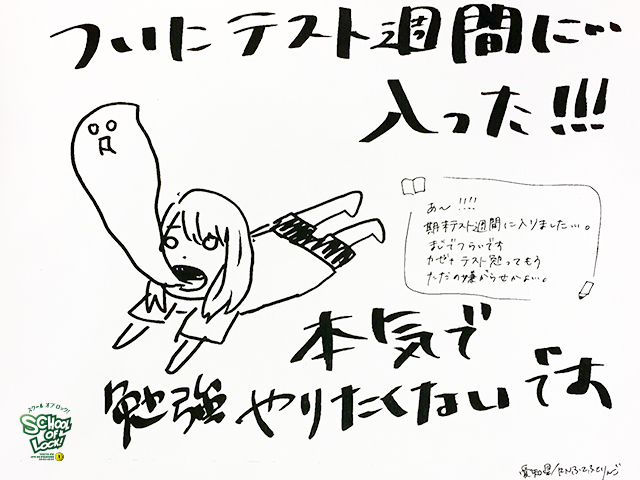 ついにテスト週間に…
入った!!!
あ〜!!!!
期末テスト週間に入りました…。
まじでつらいです
カゼ+テスト勉ってもう
ただの嫌がらせかよ…。
本気で
勉強やりたくないです
スクール オブ ロック!
SCHOOL
OF
LOCK!
愛知県